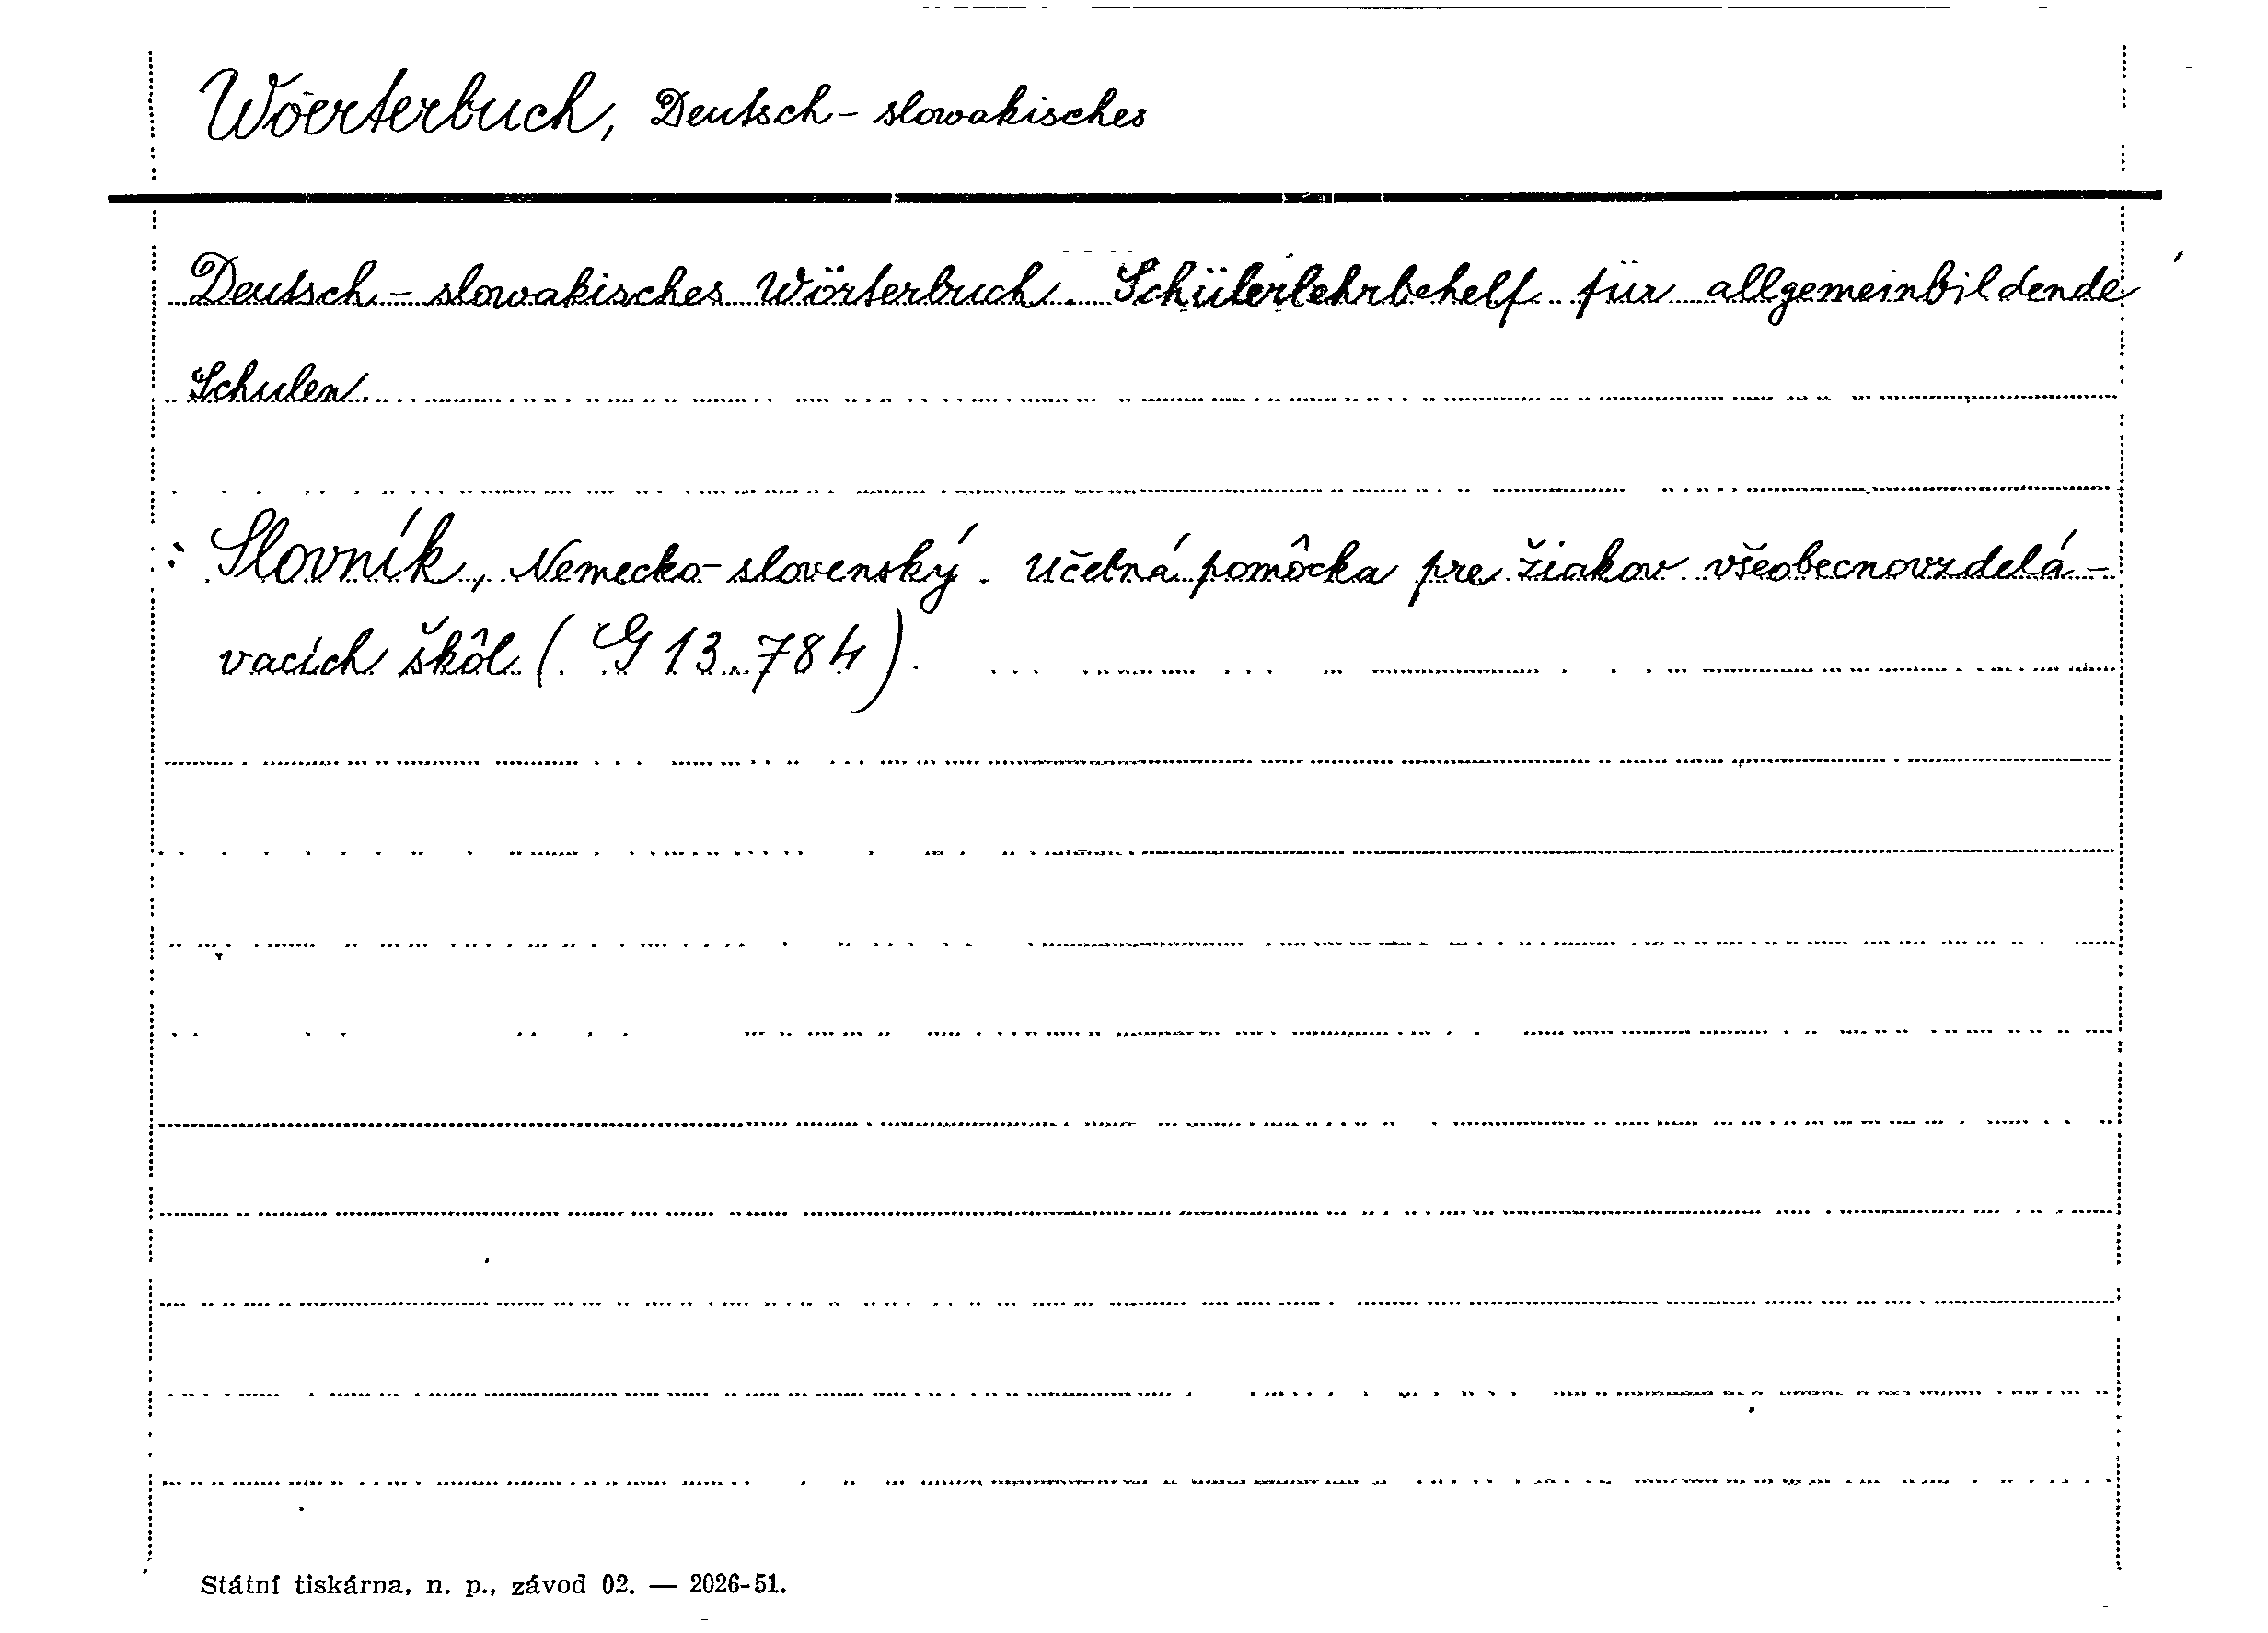 Wöerterbuch, Deutsch - slowakisches
Deutsch - slowakisches Wörterbuch. Schülerlehrbehelf für allgemeinbildende
Schulen.
: Slovník, Nemecko-slovenský. Učebná pomôcka pre žiakov všeobecnovzdelá-
vacích škôl (G 13.784).
Státní tiskárna, n. p., závod 02. — 2026-51.